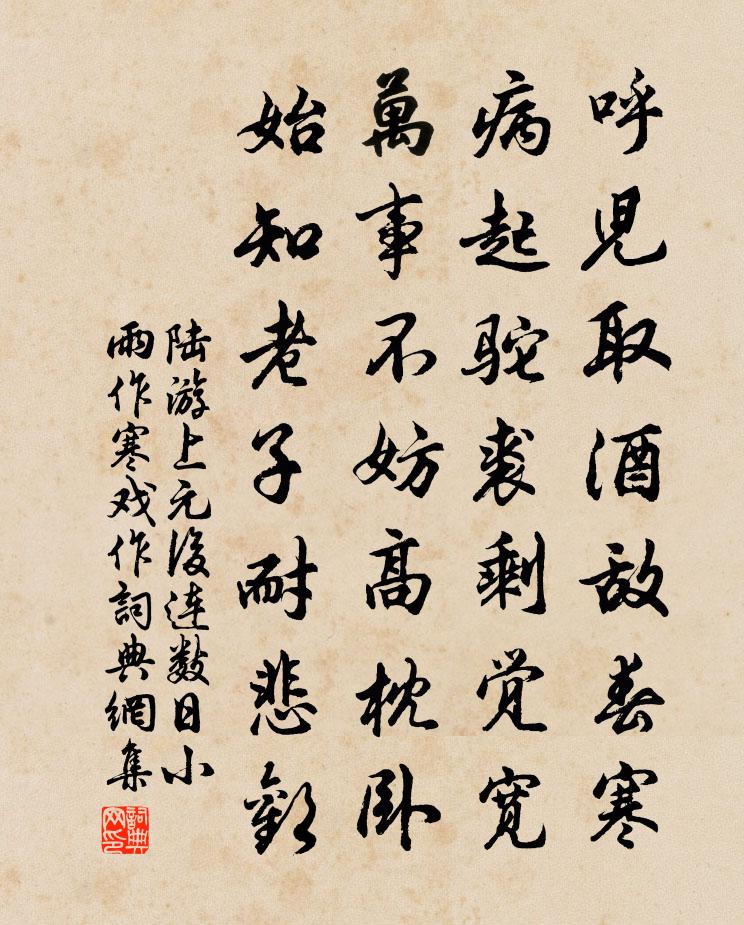 呼児取酒敌春寒
病起駝裘剩觉寛
萬事不妨高枕卧
始知老子耐悲歡
陆游上元後连数日小
雨作寒戏作詞典網集
詞典网印